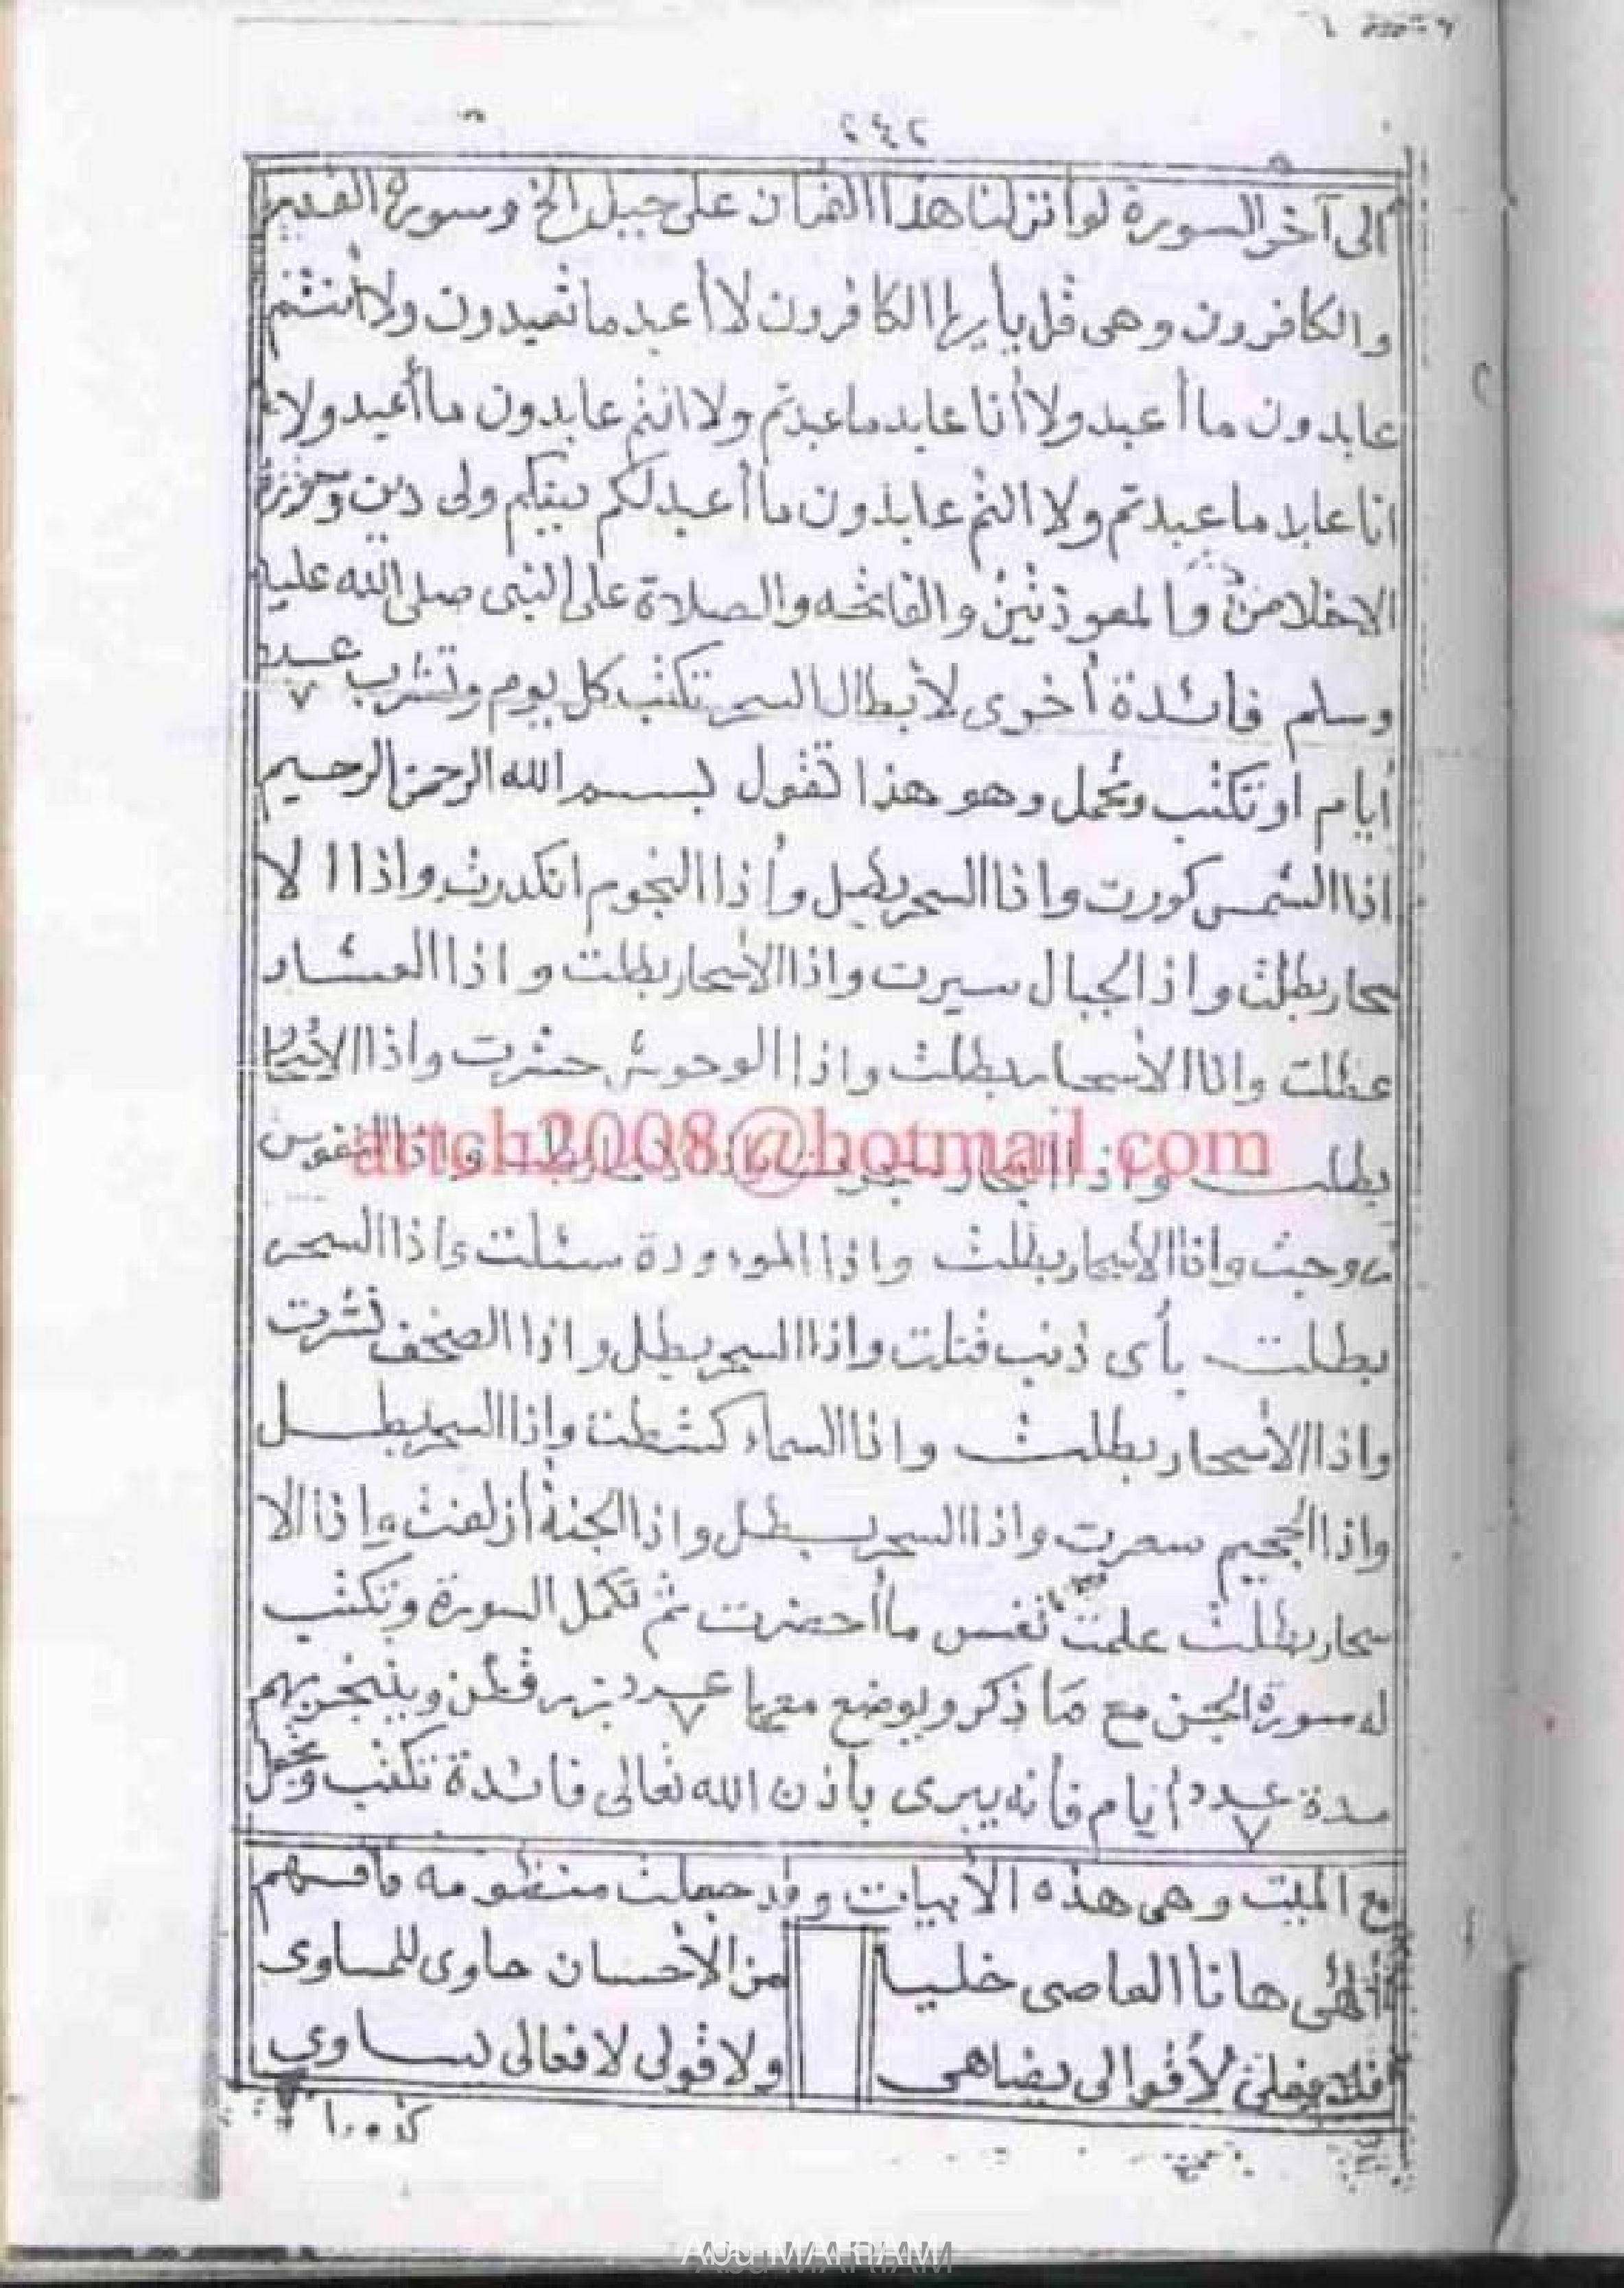 ٢٤٢
الى آخر السورة لو انزلنا هذا القران على جبل الخ وسورة القدر
والكافرون وهى قل يأيها الكافرون لا أعبد ما تعبدون ولا أنتم
عابدون ما أعبد ولا أنا عابد ما عبدتم ولا انتم عابدون ما أعبد ولا
انا عابد ما عبدتم ولا انتم عابدون ما أعبد لكم دينكم ولى دين
الاخلاص والمعوذتين والفاتحه والصلاة على النبى صلى الله عليه
وسلم فائدة أخرى لأبطال السحر تكتب كل يوم وتشرب عدد ٧
أيام او تكتب وتحمل وهو هذا تقول بسم الله الرحمن الرحيم
اذا الشمس كورت واذا السحر بطل وأذا النجوم انكدرت واذا الا
سحار بطلت واذا الجبال سيرت واذا الأسحار بطلت واذا العشار
عطلت واذا الأسحار بطلت واذا الوحوش حشرت واذا الأسحار
بطلت واذا البحار واذا النفوس
artch2008@hotmail.com
زوجت واذا الأسحار بطلت واذا الموءودة سئلت واذا السحر
بطلت بأى ذنب قتلت واذا السحر بطل واذا الصحف نشرت
واذا الأسحار بطلت واذا السماء كشطت واذا السحر بطل
واذا الجحيم سعرت واذا السحر بطل واذا الجنة أزلفت واذا الا
سحار بطلت علمت نفس ما أحضرت ثم تكمل السورة وتكتب
له سورة الجن مع ما ذكر ويوضع معها عدد ٧ بزر قطن ويتبخر بهم
مدة عدد ٧ أيام فأنه يبرى بأذن الله تعالى فائدة تكتب وتجعل
مع الميت وهى هذه الأبيات وقد جعلت منظومه فأفهم
ألهى هانا العاصى خليا من الأحسان حاوى للمساوى
لأقوالى يضاهى ولا قولى لافعالى يساوي
Abu MARIAM